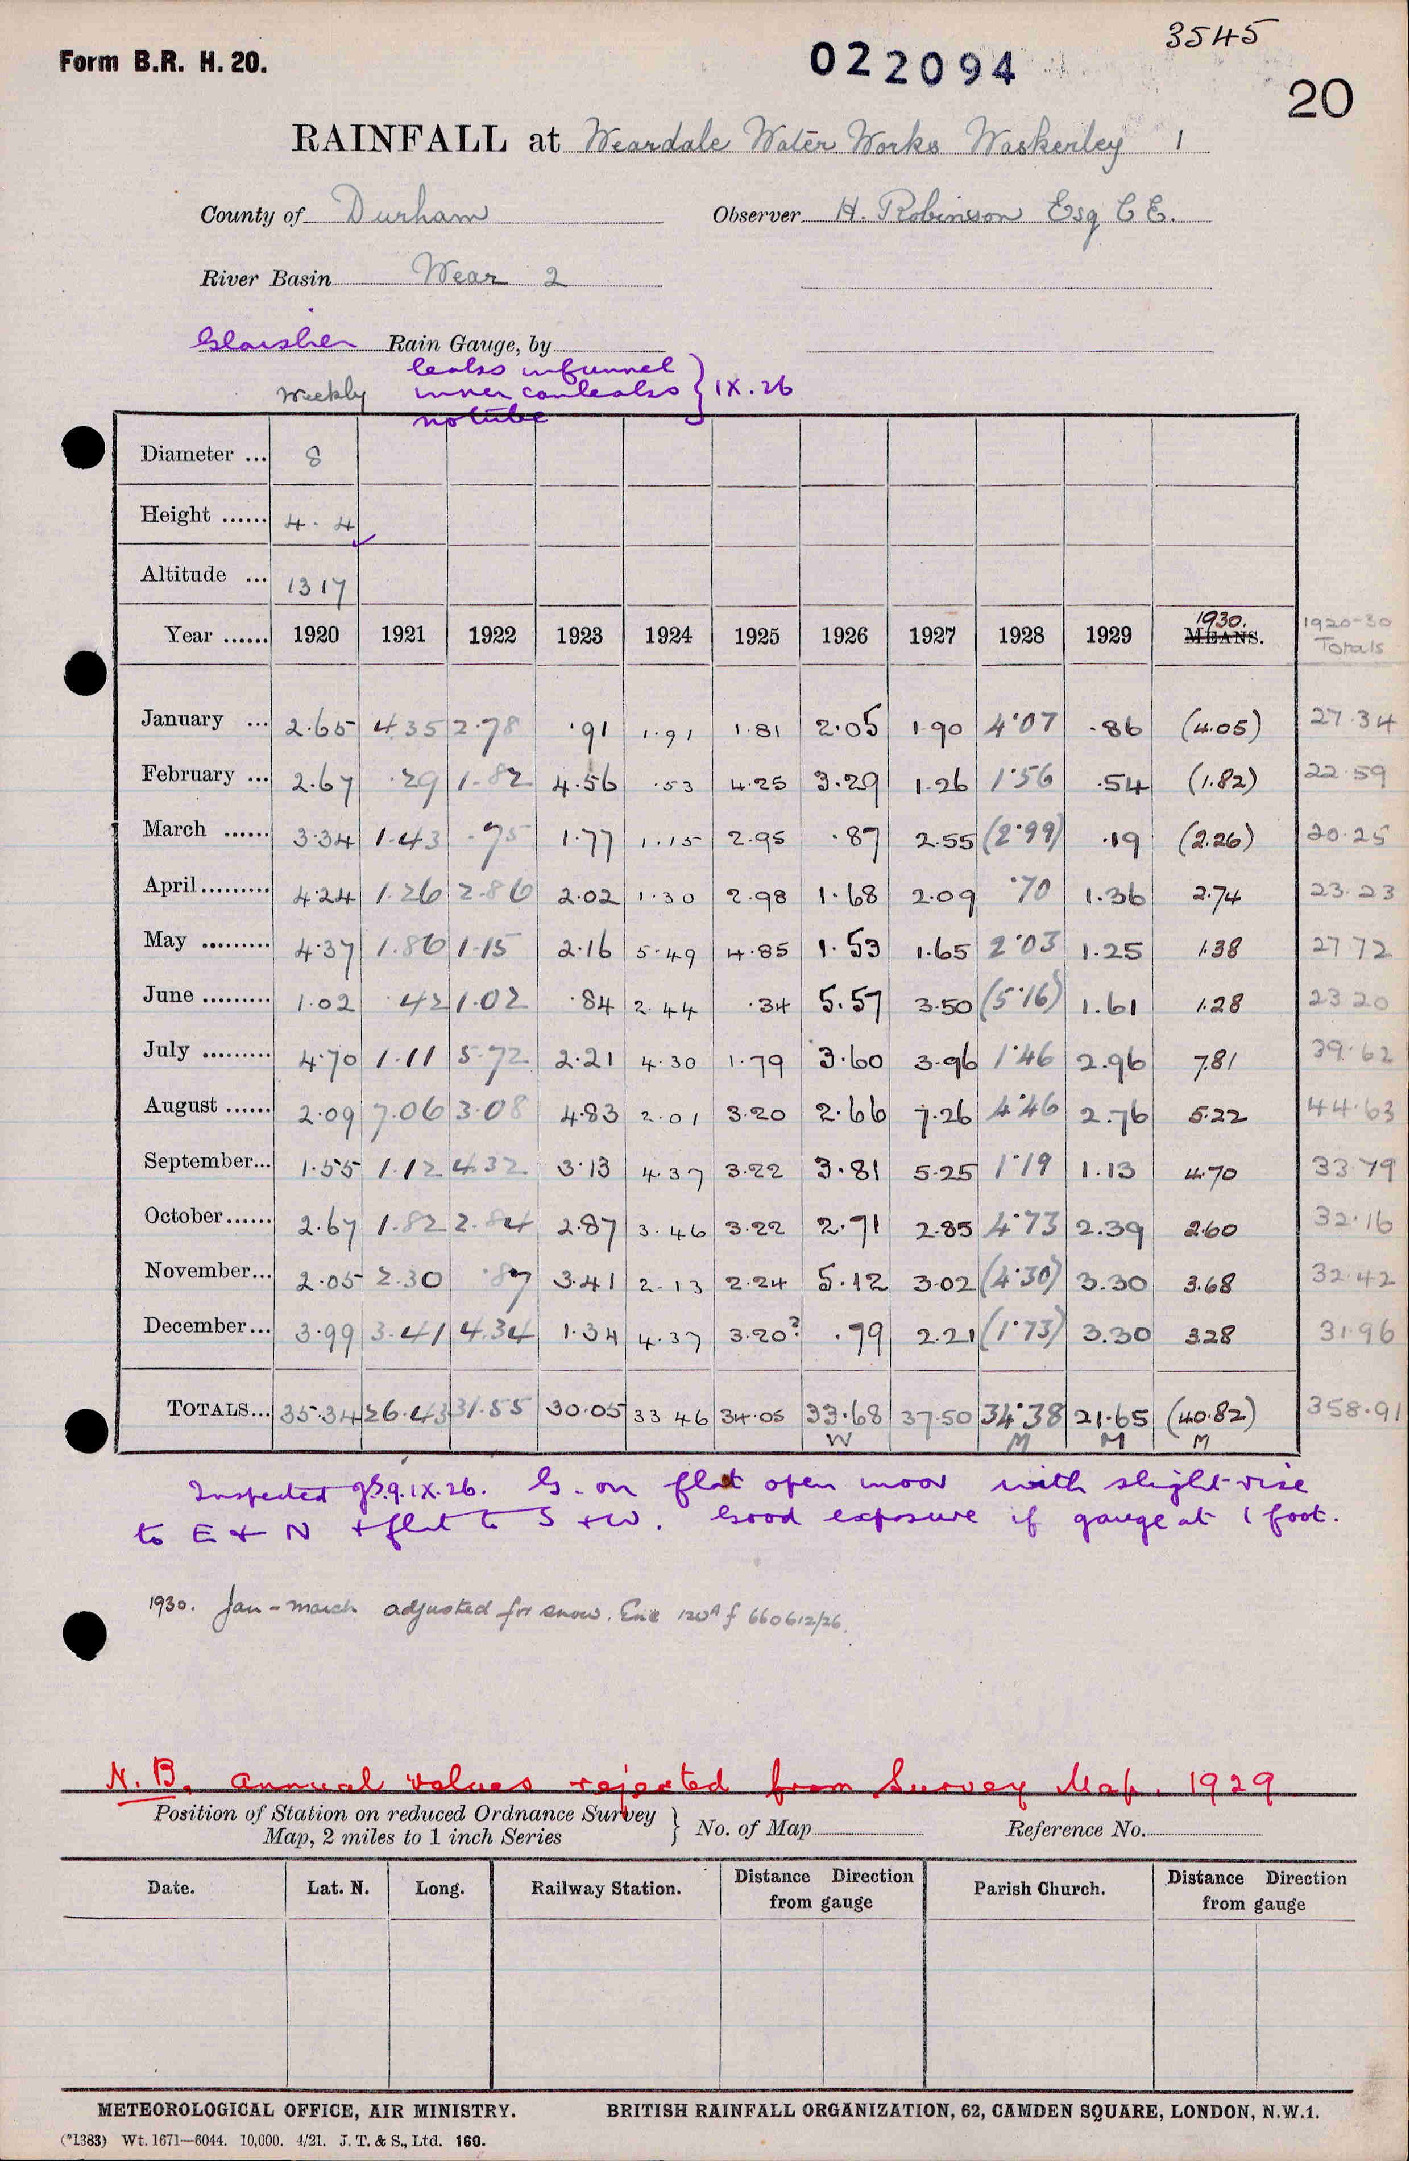 3545
Form B.R. H. 20.
022094
20
RAINFALL at Weardale Water Works Waskerley 1
County of Durham Observer H. Robinson Esq C E.
River Basin Wear 2
Glaisher Rain Gauge, by
weekly leaks in funnel
inner can leaks } IX.26
no tube
Diameter ... 8
Height ...... 4. 4
Altitude ... 1317
Year ...... 1920 1921 1922 1923 1924 1925 1926 1927 1928 1929 1930. MEANS. 1920-30 Totals
January ... 2.65 4.35 2.78 .91 1.91 1.81 2.05 1.90 4.07 .86 (4.05) 27.34
February ... 2.67 .29 1.82 4.56 .53 4.25 3.29 1.26 1.56 .54 (1.82) 22.59
March ...... 3.34 1.43 .75 1.77 1.15 2.95 .87 2.55 (2.99) .19 (2.26) 20.25
April ......... 4.24 1.26 2.86 2.02 1.30 2.98 1.68 2.09 .70 1.36 2.74 23.23
May ......... 4.37 1.86 1.15 2.16 5.49 4.85 1.53 1.65 2.03 1.25 1.38 27 72
June ......... 1.02 .42 1.02 .84 2 44 .34 5.57 3.50 (5.16) 1.61 1.28 23 20
July ......... 4.70 1.11 5.72 2.21 4.30 1.79 3.60 3.96 1.46 2.96 7.81 39.62
August ...... 2.09 7.06 3.08 4.83 2.01 3.20 2.66 7.26 4.46 2.76 5.22 44.63
September... 1.55 1.12 4.32 3.13 4.37 3.22 3.81 5.25 1.19 1.13 4.70 33 79
October...... 2.67 1.82 2.84 2.87 3.46 3.22 2.71 2.85 4.73 2.39 2.60 32.16
November... 2.05 2.30 .87 3.41 2.13 2.24 5.12 3.02 (4.30) 3.30 3.68 32.42
December... 3.99 3.41 4.34 1.34 4.37 3.20? .79 2.21 (1.73) 3.30 3.28 31.96
TOTALS... 35.34 26.43 31.55 30.05 33 46 34.05 33.68 37.50 34.38 21.65 (40.82) 358.91
W M M M
Inspected 9.IX.26. G. on flat open moor with slight rise
to E + N + flat to S + W. Good exposure if gauge at 1 foot.
1930. Jan - March adjusted for snow. Enc 120A f 660612/26.
N.B. Annual values rejected from Survey Map. 1929
Position of Station on reduced Ordnance Survey
Map, 2 miles to 1 inch Series } No. of Map Reference No.
Date. Lat. N. Long. Railway Station. Distance Direction from gauge Parish Church. Distance Direction from gauge
METEOROLOGICAL OFFICE, AIR MINISTRY. BRITISH RAINFALL ORGANIZATION, 62, CAMDEN SQUARE, LONDON, N.W.1.
(*1383) Wt. 1671—6044. 10,000. 4/21. J. T. & S., Ltd. 160.